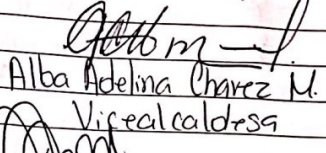 Alba Adelina Chavez M.
Vicealcaldesa